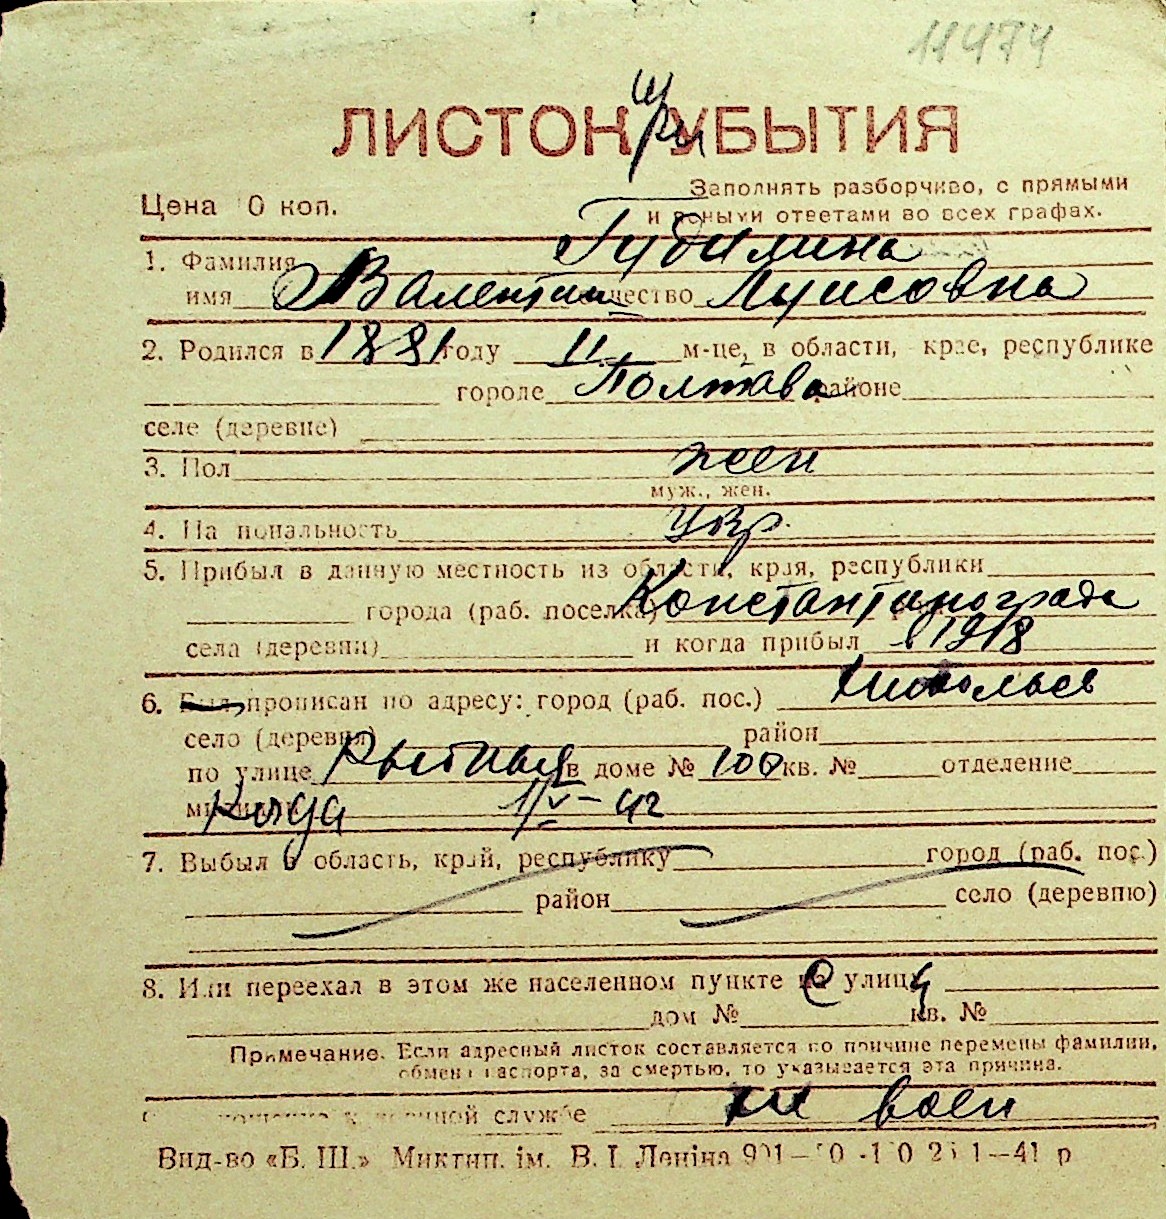 11474
ЛИСТОК при УБЫТИЯ
Заполнять разборчиво, с прямыми
Цена 0 коп.
и ясными ответами во всех графах.
1. Фамилия Губилина
имя Валентин чество Луисовна
2. Родился в 1881 году 11 м-це, в области, крае, республике
городе Полтава районе
селе (деревне)
3. Пол жен
муж., жен.
4. Национальность укр.
5. Прибыл в данную местность из области, края, республики
города (раб. поселка) Константинограда
села (деревни) и когда прибыл в 1918
6. Был прописан по адресу: город (раб. пос.) Николаев
село (деревня) район
по улице Рыбная в доме № 100 кв. № отделение
милиции Когда 1/V-42
7. Выбыл в область, край, республику город (раб. пос.)
район село (деревню)
8. Или переехал в этом же населенном пункте с улицы
дом № кв. №
Примечание. Если адресный листок составляется по причине перемены фамилии,
обмена паспорта, за смертью, то указывается эта причина.
службе не воен
Вид-во «Б. Ш.» Миктип. ім. В. І. Леніна